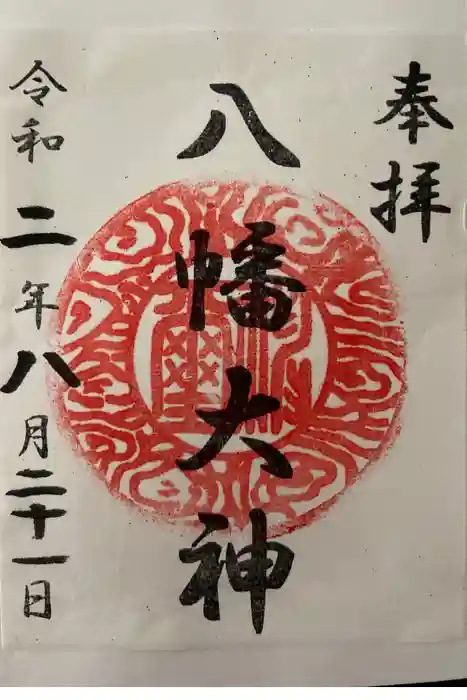 奉拝
八幡大神
令和二年八月二十一日